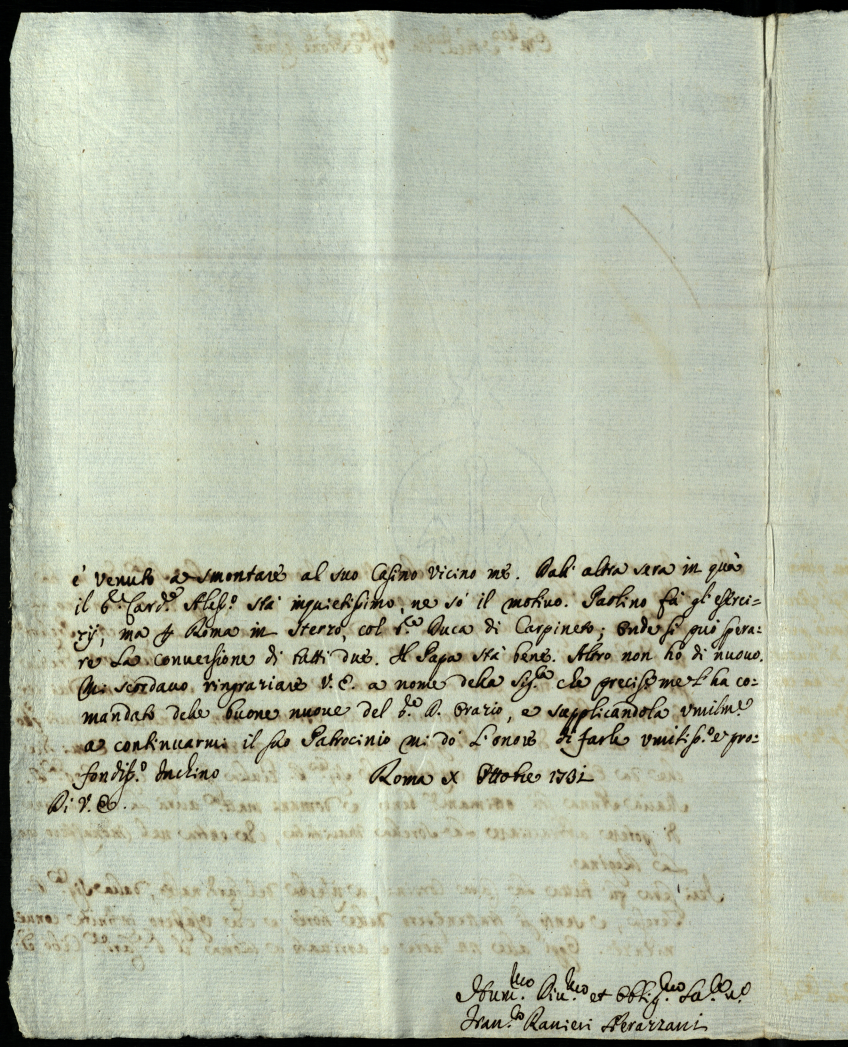 è venuto a smontare al suo Casino vicino me. Dall' altra sera in quà
il S.r Card.e Aless.o stà inquietissimo, ne sò il motivo. Paolino fà gl'eserci-
zij, ma p Roma in sterzo, col S.r Duca di Carpineto; onde si può spera-
re la conversione di tutti due. Il Papa stà bene. Altro non hò di nuovo.
Mi scordavo ringraziare V. E. a nome della Sig.ra che precisam.e l'ha co-
mandato delle buone nuove del S.r D. Orazio, e supplicandola umilm.e
a continuarmi il suo Patrocinio mi dò l'onore di farle umilis.o e pro-
fondiss.o Inchino Roma X Ottobre 1731
Di V. E.
Hum.mo Div.mo et Obblig.mo
Fran.co Ranieri